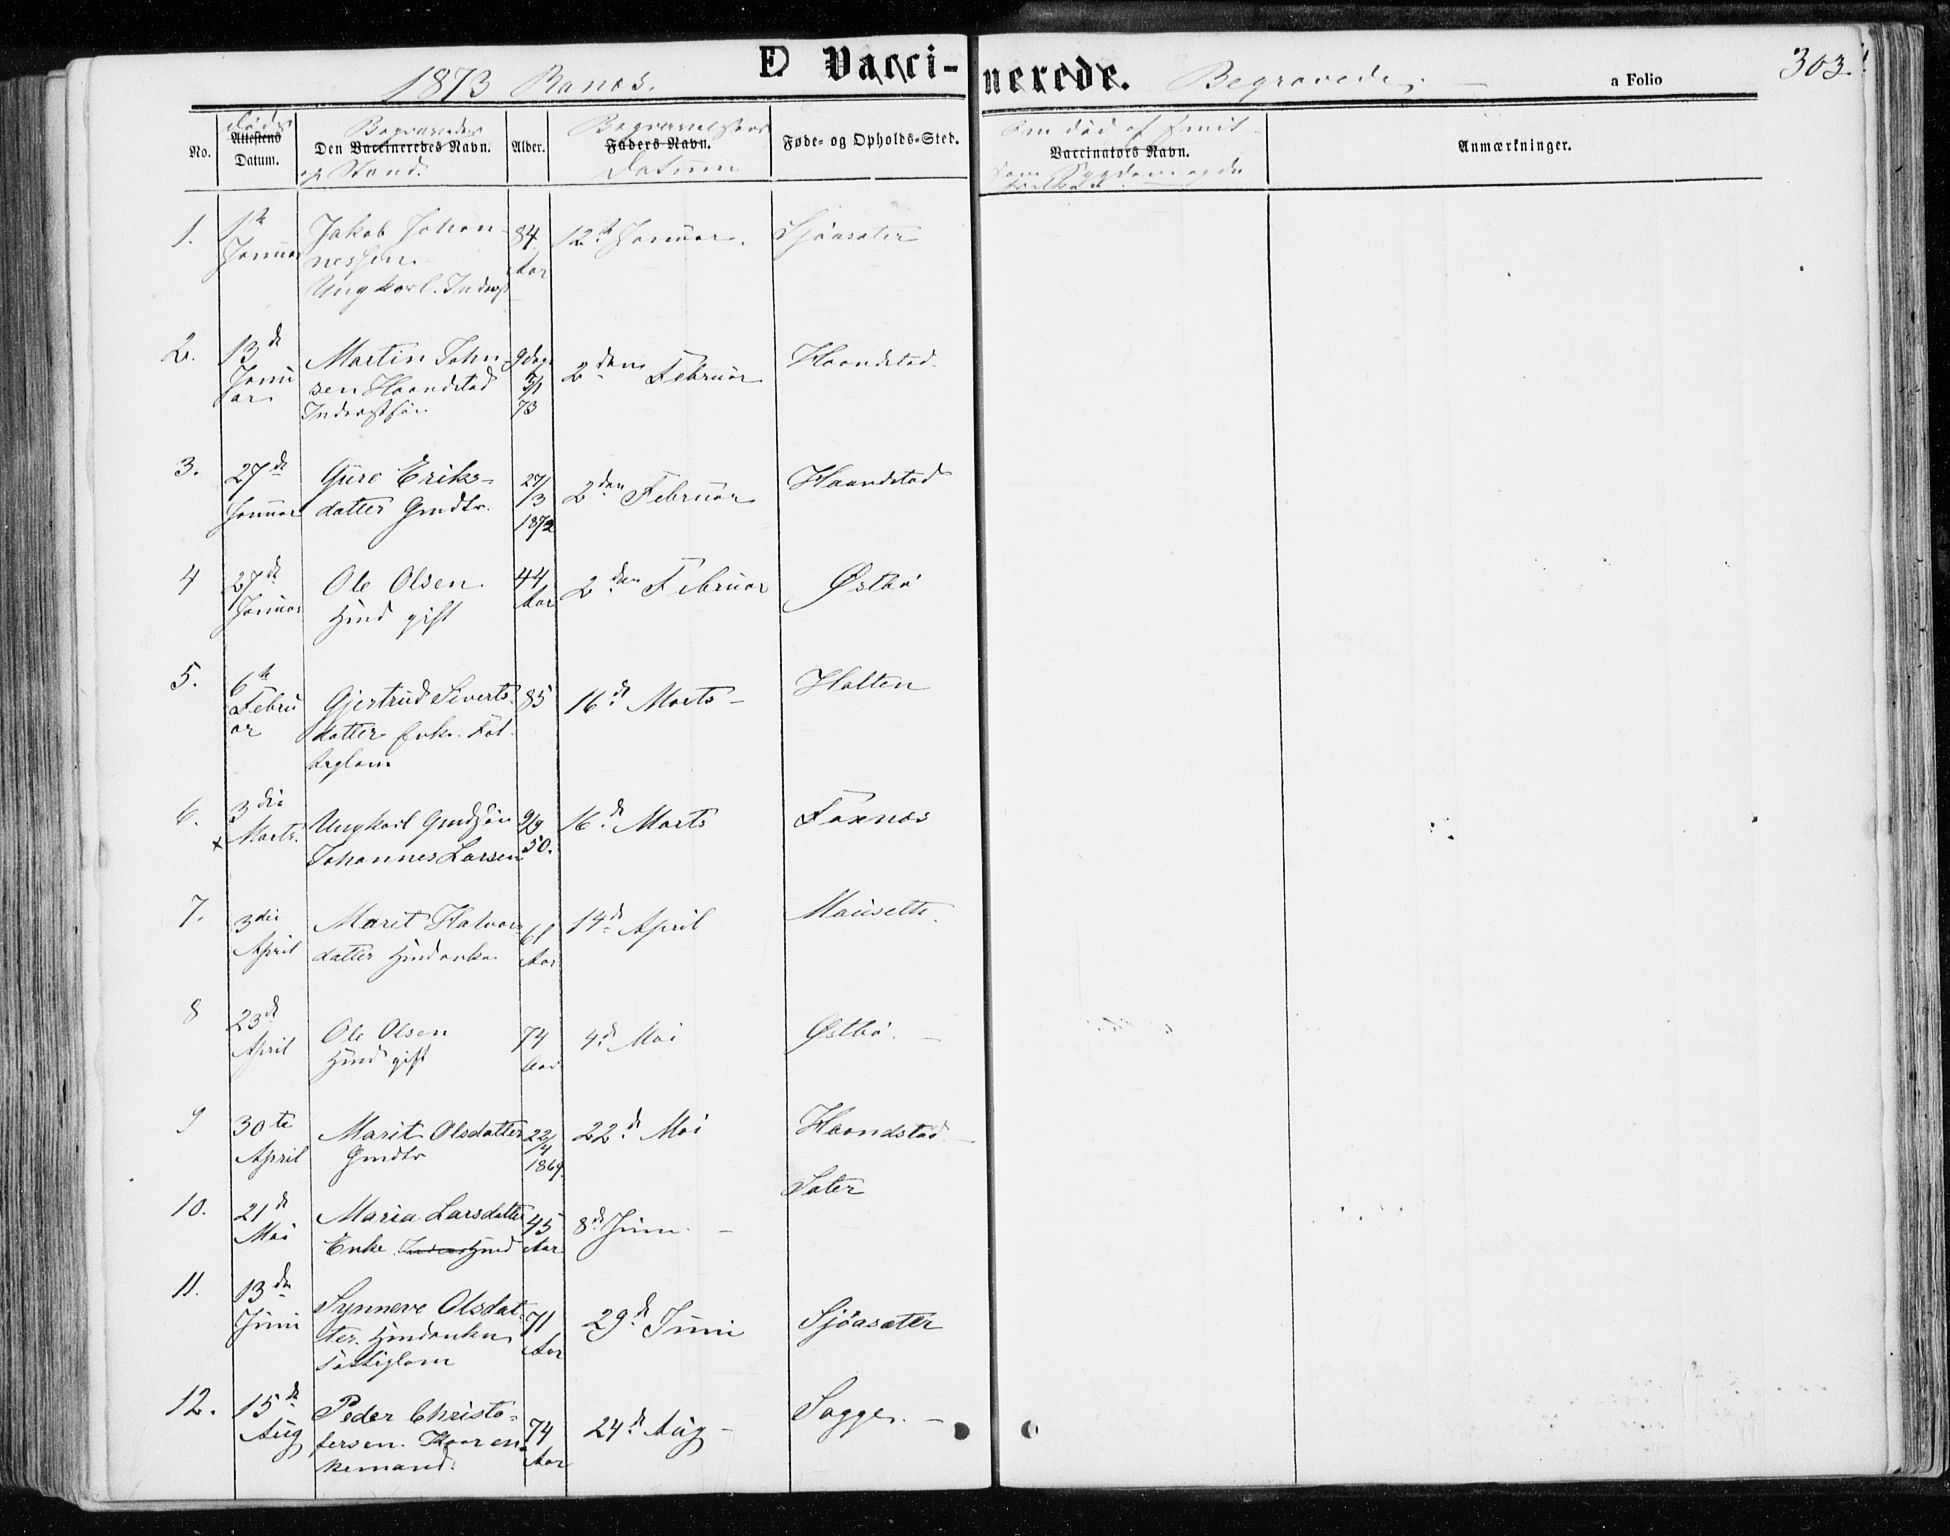 1873 Ranes. E Vaccinerede. Begravede. a Folio 303.
No.
Døds
Attestens
Datum.
Begravedes
Den Vaccineredes Navn.
og Stand.
Alder.
Begravelsens
Faders Navn.
Datum
Føde- og Opholds-Sted.
Om død af smit-
Vaccinators Navn.
som Sygdom og da
Anmærkninger.
1.
1ste
Januar
Jakob Johan-
nessen.
Ungkarl. Inderst
84
Aar
12te Januar.
Sjöasæter
2.
13de
Janu
ar
Martin John-
sen Haandstad
Inderstsøn
9 dage
3/1
73
2den Februar
Haandstad.
3.
27de
Januar
Guro Eriks-
datter Gmdtr.
27/
13
1872
2den Februar
Haandstad
4
27de
Januar
Ole Olsen
Hmd gift
44
Aar
2den Februar
Østbö
5.
6te
Febru
ar
Gjertrud Siverts
datter Enke. Fat-
tiglem
85
16de Marts -
Halten
6.
x
3die
Marts.
Ungkarl Gmdsøn
Johannes Larsen
9/9
50.
16de Marts
Foxnæs
7.
3die
April
Marit Halvor
datter Hmdenke
61
Aar
14de April
Mauseth.
8
23de
April
Ole Olsen
Hmd gift
74
Aar
4de Mai
Østbö. -
9
30te
April
Marit Olsdatter
Gmdtr
22/
4
1869.
22de Mai
Haandstad. -
10.
21de
Mai
Maria Larsdatter
Enke Hmd
45
Aar
8de Juni. -
Sæter
11.
13de
Juni
Synneve Olsdat-
ter. Hmdenke
Fattiglem
71
Aar
29de Juni
Sjöasæter
12.
15de
Aug
Peder Christo-
fersen. Kaaren-
kemand.
74
Aar
24de Aug -
Sogge. -